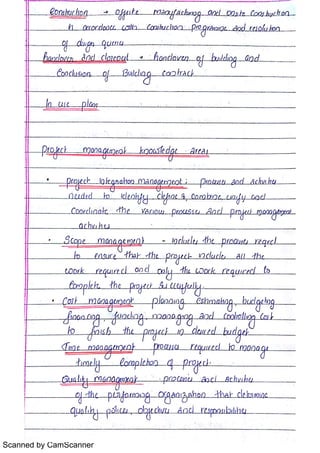 Construction → offsite manufacturing and onsite construction
in accordance with construction programme and resolution
of design queries
handover and closeout → handover of building and
conclusion of Building contract
In use plan
Project management knowledge areas
• project integration management : processes and activities
needed to identify, define, combine, unify and
coordinate the various processes and project management
activities
• Scope management - includes the process reqred
to ensure that the project includes all the
work required and only the work required to
complete the project successfully.
• Cost management planning, estimating, budgeting
financing, funding, managing and controlling cost
to finish the project in desired budget
Time management process required to manage
timely completion of project.
Quality management process and activities
of the performing organization that determine
quality policies, objectives and responsibilities
Scanned by CamScanner